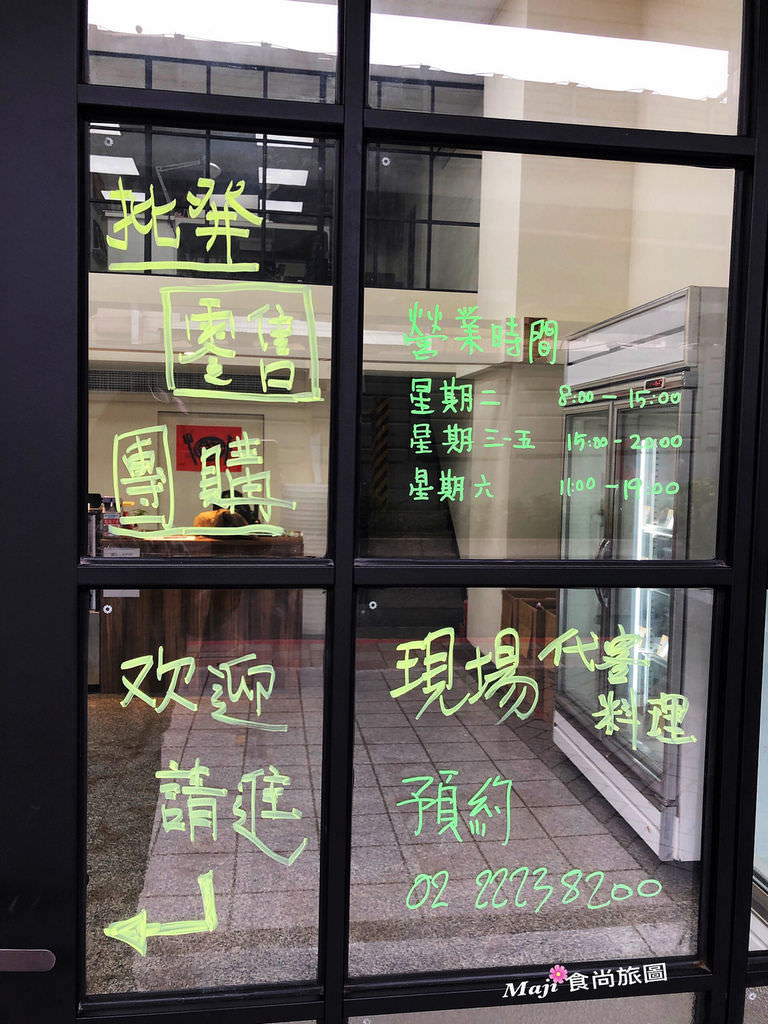 批發
零售
團購
營業時間
星期二 8:00－15:00
星期三-五 15:00－20:00
星期六 11:00－19:00
欢迎
請進
現場代客
料理
預約
02 22238200
Maji 食尚旅圖